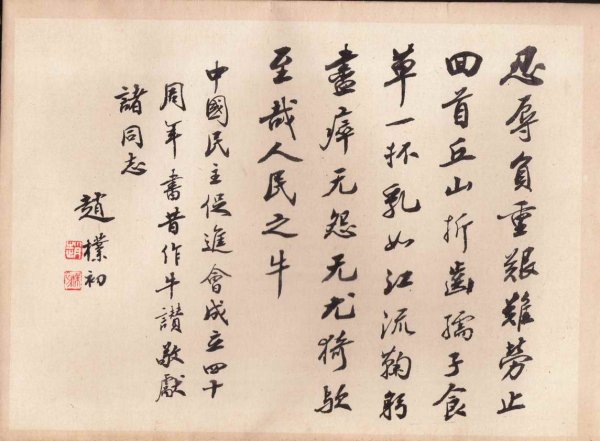 忍辱負重艱難勞止
回首丘山折齒孺子食
草一抔乳如江流鞠躬
盡瘁无怨无尤猗歟
至哉人民之牛
中國民主促進會成立四十
周年書昔作牛讃敬獻
諸同志
趙樸初